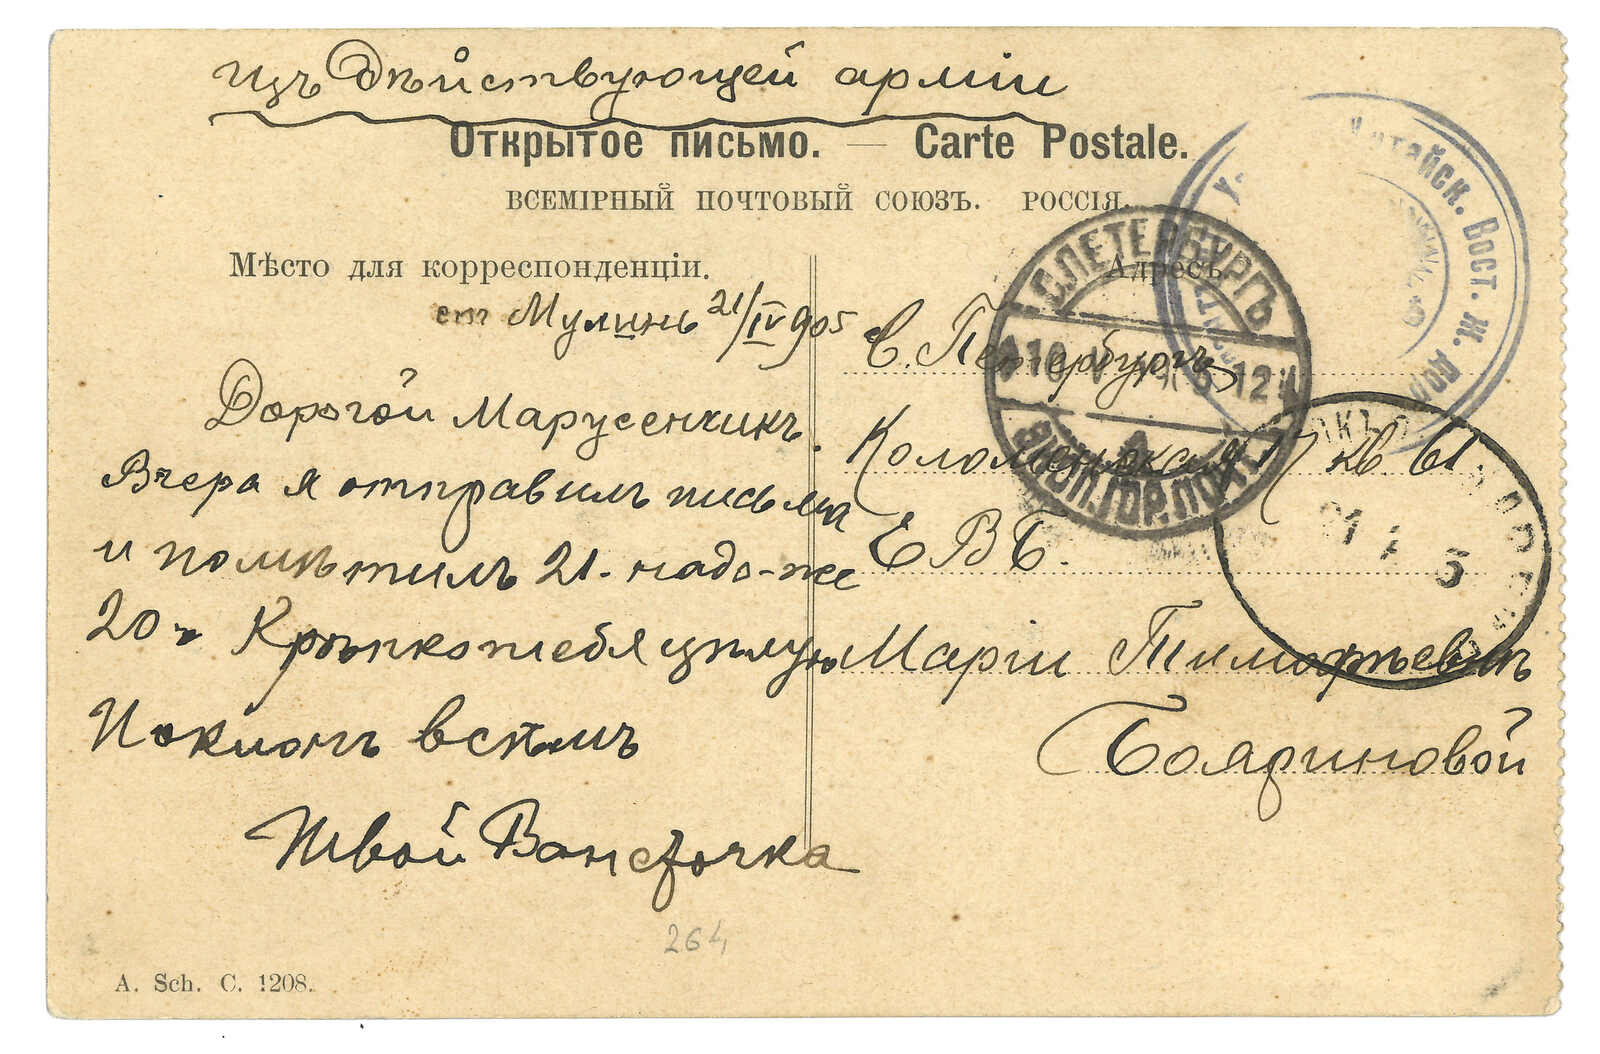 изъ Дѣйствующей арміи
Открытое письмо. — Carte Postale.
ВСЕМІРНЫЙ ПОЧТОВЫЙ СОЮЗЪ. РОССІЯ.
Мѣсто для корреспонденціи.
ст Мулинь 21/IV 905
Дорогой Марусенчикъ.
Вчера я отправилъ письма
и помѣтилъ 21. надо-же
20 Крѣпко тебя цѣлую
Поклонъ всѣмъ
Твой Ванечка
264
A. Sch. C. 1208.
Адресъ.
С. Петербургъ
Коломенская 17 кв 61.
ЕВБ.
Маріи Тимофѣевнѣ
Бояриновой
С.ПЕТЕРБУРГЪ
10 V 5 12
ГОР. ПОЧТ
Китайск. Вост. Ж. Дор
21 5